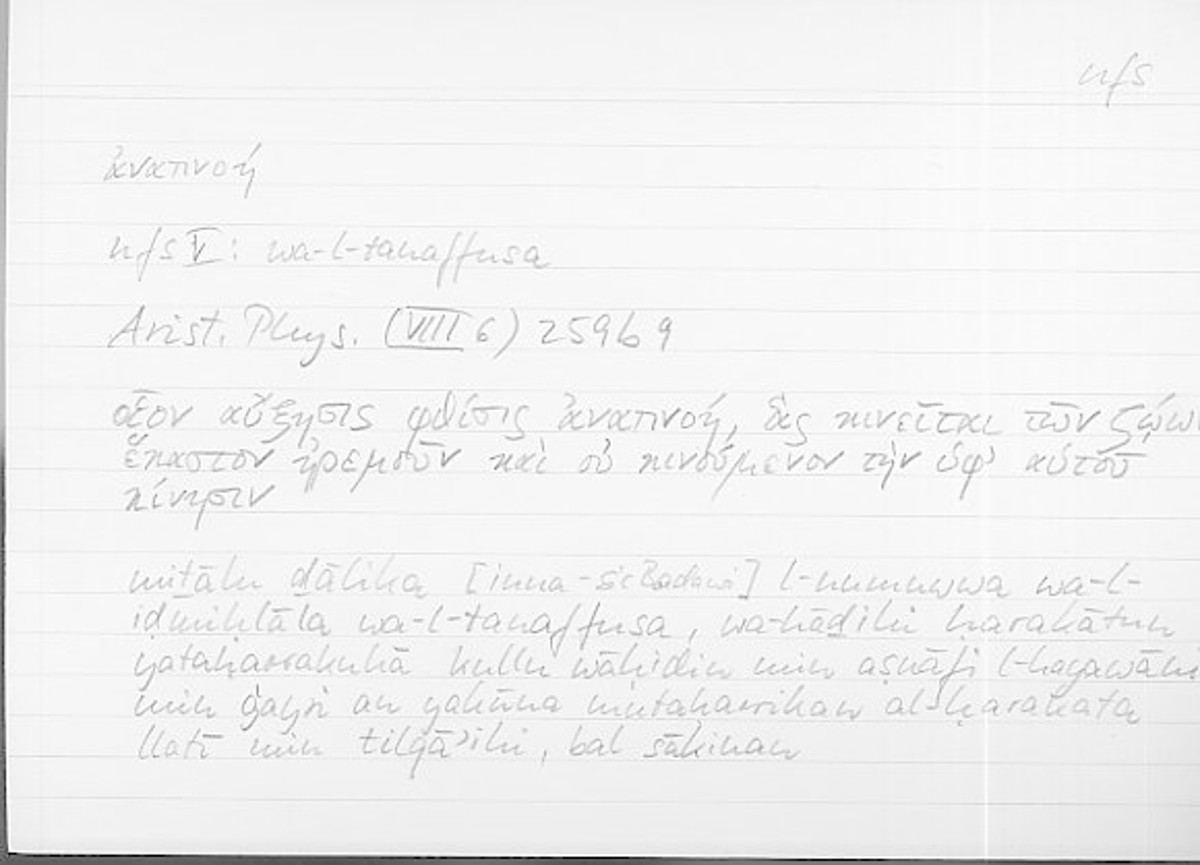 nfs
ἀναπνοή
nfs V: wa-l-tanaffusa
Arist. Phys. (VIII 6) 259b9
οἷον αὔξησις φθίσις ἀναπνοή, ἃς κινεῖται τῶν ζῴων
ἕκαστον ἠρεμοῦν καὶ οὐ κινούμενον τὴν ὑφ' αὑτοῦ
κίνησιν
miṯālu ḏālika [inna - sic Badawi] l-numuwwa wa-l-
iḍmiḥlāla wa-l-tanaffusa, wa-hāḏihi ḥarakātun
yataḥarrakuhā kullu wāḥidin min aṣnāfi l-ḥayawāni
min ġayri an yakūna mutaḥarrikan al-ḥarakata
llatī min tilqāʾihi, bal sākinan